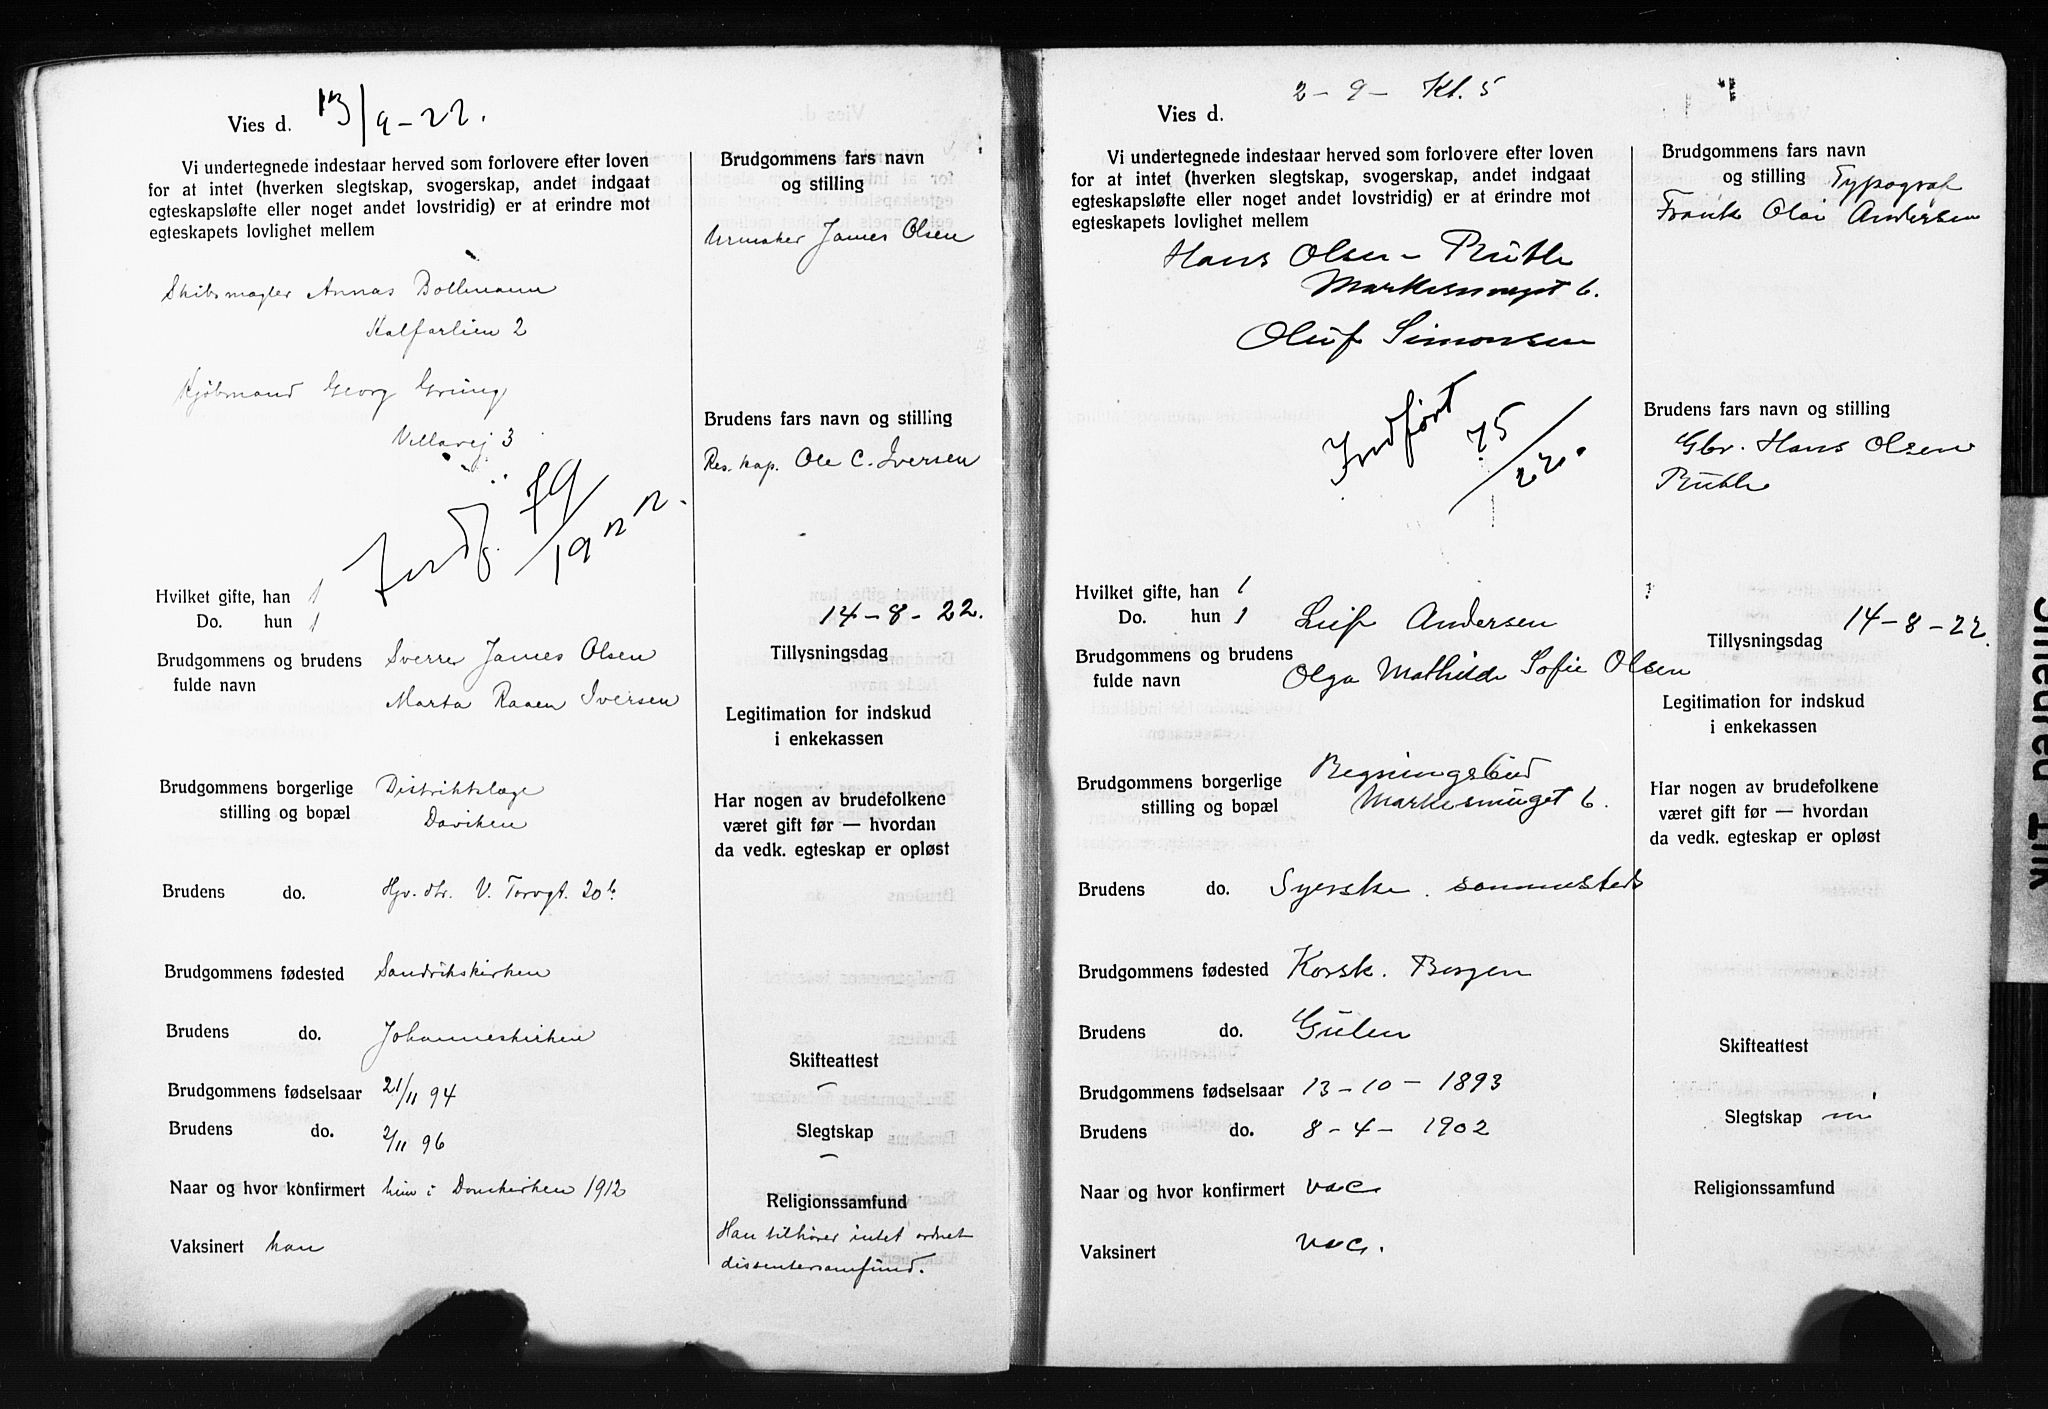 Vies d. 13/9-22.
Vi undertegnede indestaar herved som forlovere efter loven
for at intet (hverken slegtskap, svogerskap, andet indgaat
egteskapsløfte eller noget andet lovstridig) er at erindre mot
egteskapets lovlighet mellem
Skibsmægler Annas Bollmann
Kalfarlien 2
Kjøbmand Georg Grung
Villavej 3
Indf. 79/1922.
Hvilket gifte, han 1
Do. hun 1
Brudgommens og brudens
fulde navn
Sverre James Olsen
Marta Raaen Iversen
Brudgommens borgerlige
stilling og bopæl
Distriktslæge
Daviken
Brudens do. Hjv. dtr. V. Torvgt. 20b
Brudgommens fødested Sandvikskirken
Brudens do. Johanneskirken
Brudgommens fødselsaar 21/11 94
Brudens do. 2/11 96
Naar og hvor konfirmert hun i Domkirken 1912
Vaksinert han
Brudgommens fars navn
og stilling
Urmaker James Olsen
Brudens fars navn og stilling
Res. kap. Ole C. Iversen
14-8-22.
Tillysningsdag
Legitimation for indskud
i enkekassen
Har nogen av brudefolkene
været gift før — hvordan
da vedk. egteskap er opløst
Skifteattest
–
Slegtskap
–
Religionssamfund
Han tilhører intet ordnet
dissentersamfund.
2-9- Kl. 5
Vies d.
Vi undertegnede indestaar herved som forlovere efter loven
for at intet (hverken slegtskap, svogerskap, andet indgaat
egteskapsløfte eller noget andet lovstridig) er at erindre mot
egteskapets lovlighet mellem
Hans Olsen - Rutle
Markesmuget 6.
Oluf Simonsen
Indført 75/22.
Hvilket gifte, han 1
Do. hun 1
Brudgommens og brudens
fulde navn
Leif Andersen
Olga Mathilde Sofie Olsen
Brudgommens borgerlige
stilling og bopæl
Regningsbud
Markesmuget 6.
Brudens do. Syerske. sammesteds
Brudgommens fødested Korsk. Bergen
Brudens do. Gulen
Brudgommens fødselsaar 13-10-1893
Brudens do. 8-4-1902
Naar og hvor konfirmert vac.
Vaksinert vac.
Brudgommens fars navn
og stilling Typograf
Frank Olai Andersen
Brudens fars navn og stilling
Gbr. Hans Olsen
Rutle
14-8-22.
Tillysningsdag
Legitimation for indskud
i enkekassen
Har nogen av brudefolkene
været gift før — hvordan
da vedk. egteskap er opløst
Skifteattest
Slegtskap
Religionssamfund